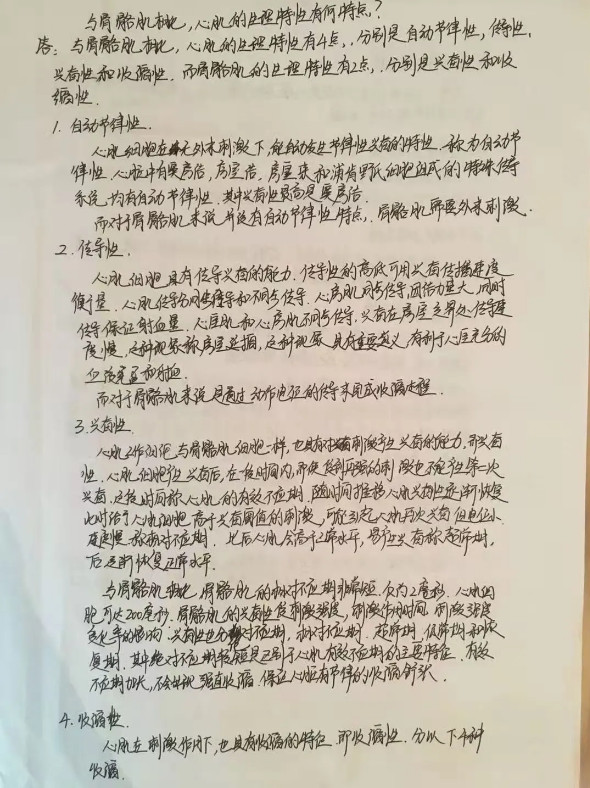 与骨骼肌相比，心肌的生理特性有何特点？
答：与骨骼肌相比，心肌的生理特性有4点，分别是自动节律性，传导性，
兴奋性和收缩性．而骨骼肌的生理特性有2点，分别是兴奋性和收
缩性．
1．自动节律性．
心肌细胞在无外来刺激下，能自动发生节律性兴奋的特性．称为自动节
律性．心脏中有窦房结，房室结．房室束和浦肯野氏细胞组成的特殊传导
系统．均有自动节律性．其中兴奋性最高是窦房结．
而对于骨骼肌来说并没有自动节律性特点，骨骼肌需要外来刺激．
2．传导性．
心肌细胞具有传导兴奋的能力．传导性的高低可用兴奋传播速度
衡量．心肌传导分同步传导和不同步传导．心房肌同步传导，回缩力量大，同时
传导保证射血量．心室肌和心房肌不同步传导，兴奋在房室交界处传导速
度慢，这种现象称房室延搁，这种现象具有重要意义，有利于心室充分的
血液充盈和射血．
而对于骨骼肌来说是通过动作电位的传导来完成收缩过程．
3．兴奋性．
心肌工作细胞与骨骼肌细胞一样，也具有对刺激产生兴奋的能力，即兴奋
性．心肌细胞产生兴奋后，在一段时间内，即使受到再强的刺激也不能产生第二次
兴奋，这段时间称心肌的有效不应期．随时间推移心肌兴奋性逐渐恢复
此时给予心肌细胞高于兴奋阈值的刺激，可引起心肌再次兴奋但电位小．
速度慢．称相对不应期．此后心肌会高于正常水平，易产生兴奋称超常期，
后逐渐恢复正常水平．
与骨骼肌相比．骨骼肌的绝对不应期非常短．仅为2毫秒．心肌细
胞可达200毫秒．骨骼肌的兴奋性受刺激强度，刺激作用时间．刺激强度
变化率的影响．兴奋性也分绝对不应期．相对不应期．超常期，低常期和恢
复期．其中绝对不应期较短是区别于心肌有效不应期的主要特征．有效
不应期加长，不会出现强直收缩．保证心脏有节律的收缩舒张．
4．收缩性．
心肌在刺激作用下，也具有收缩的特征．即收缩性．分以下4种
收缩．